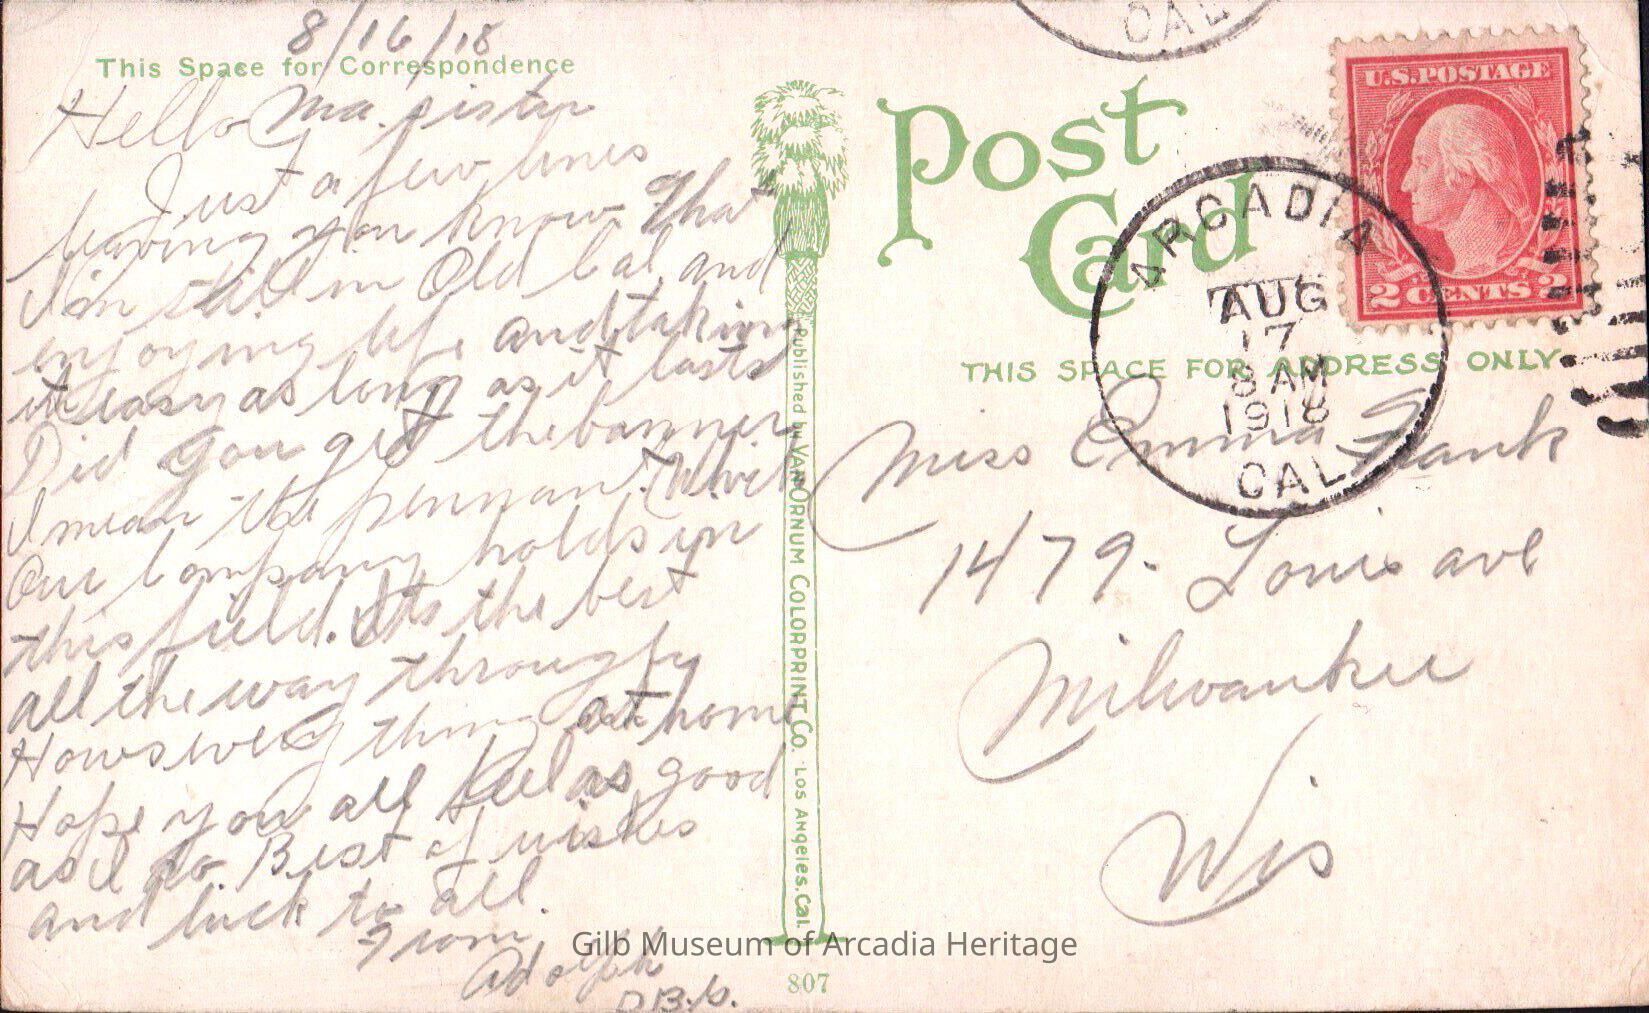 8/16/18
This Space for Correspondence
Hello Ma. sister
Just a few lines
leaving you know that
I'm still in Old Cal. and
enjoying life and taking
it easy as long as it lasts
Did you get the banner
I mean the pennant. Which
Our Company holds in
this field. Its the best
all the way through
Hows every thing at home
Hope you all feel as good
as I do. Best of wishes
and luck to all.
From
Adolph
Published by Van Ornum Colorprint Co. Los Angeles. Cal
807
Post
Card
THIS SPACE FOR ADDRESS ONLY
CAL
ARCADIA
AUG
17
8 AM
1918
CAL
U.S. POSTAGE
2 CENTS 2
Miss Emma Frank
1479. Louis ave
Milwaukee
Wis
Gilb Museum of Arcadia Heritage